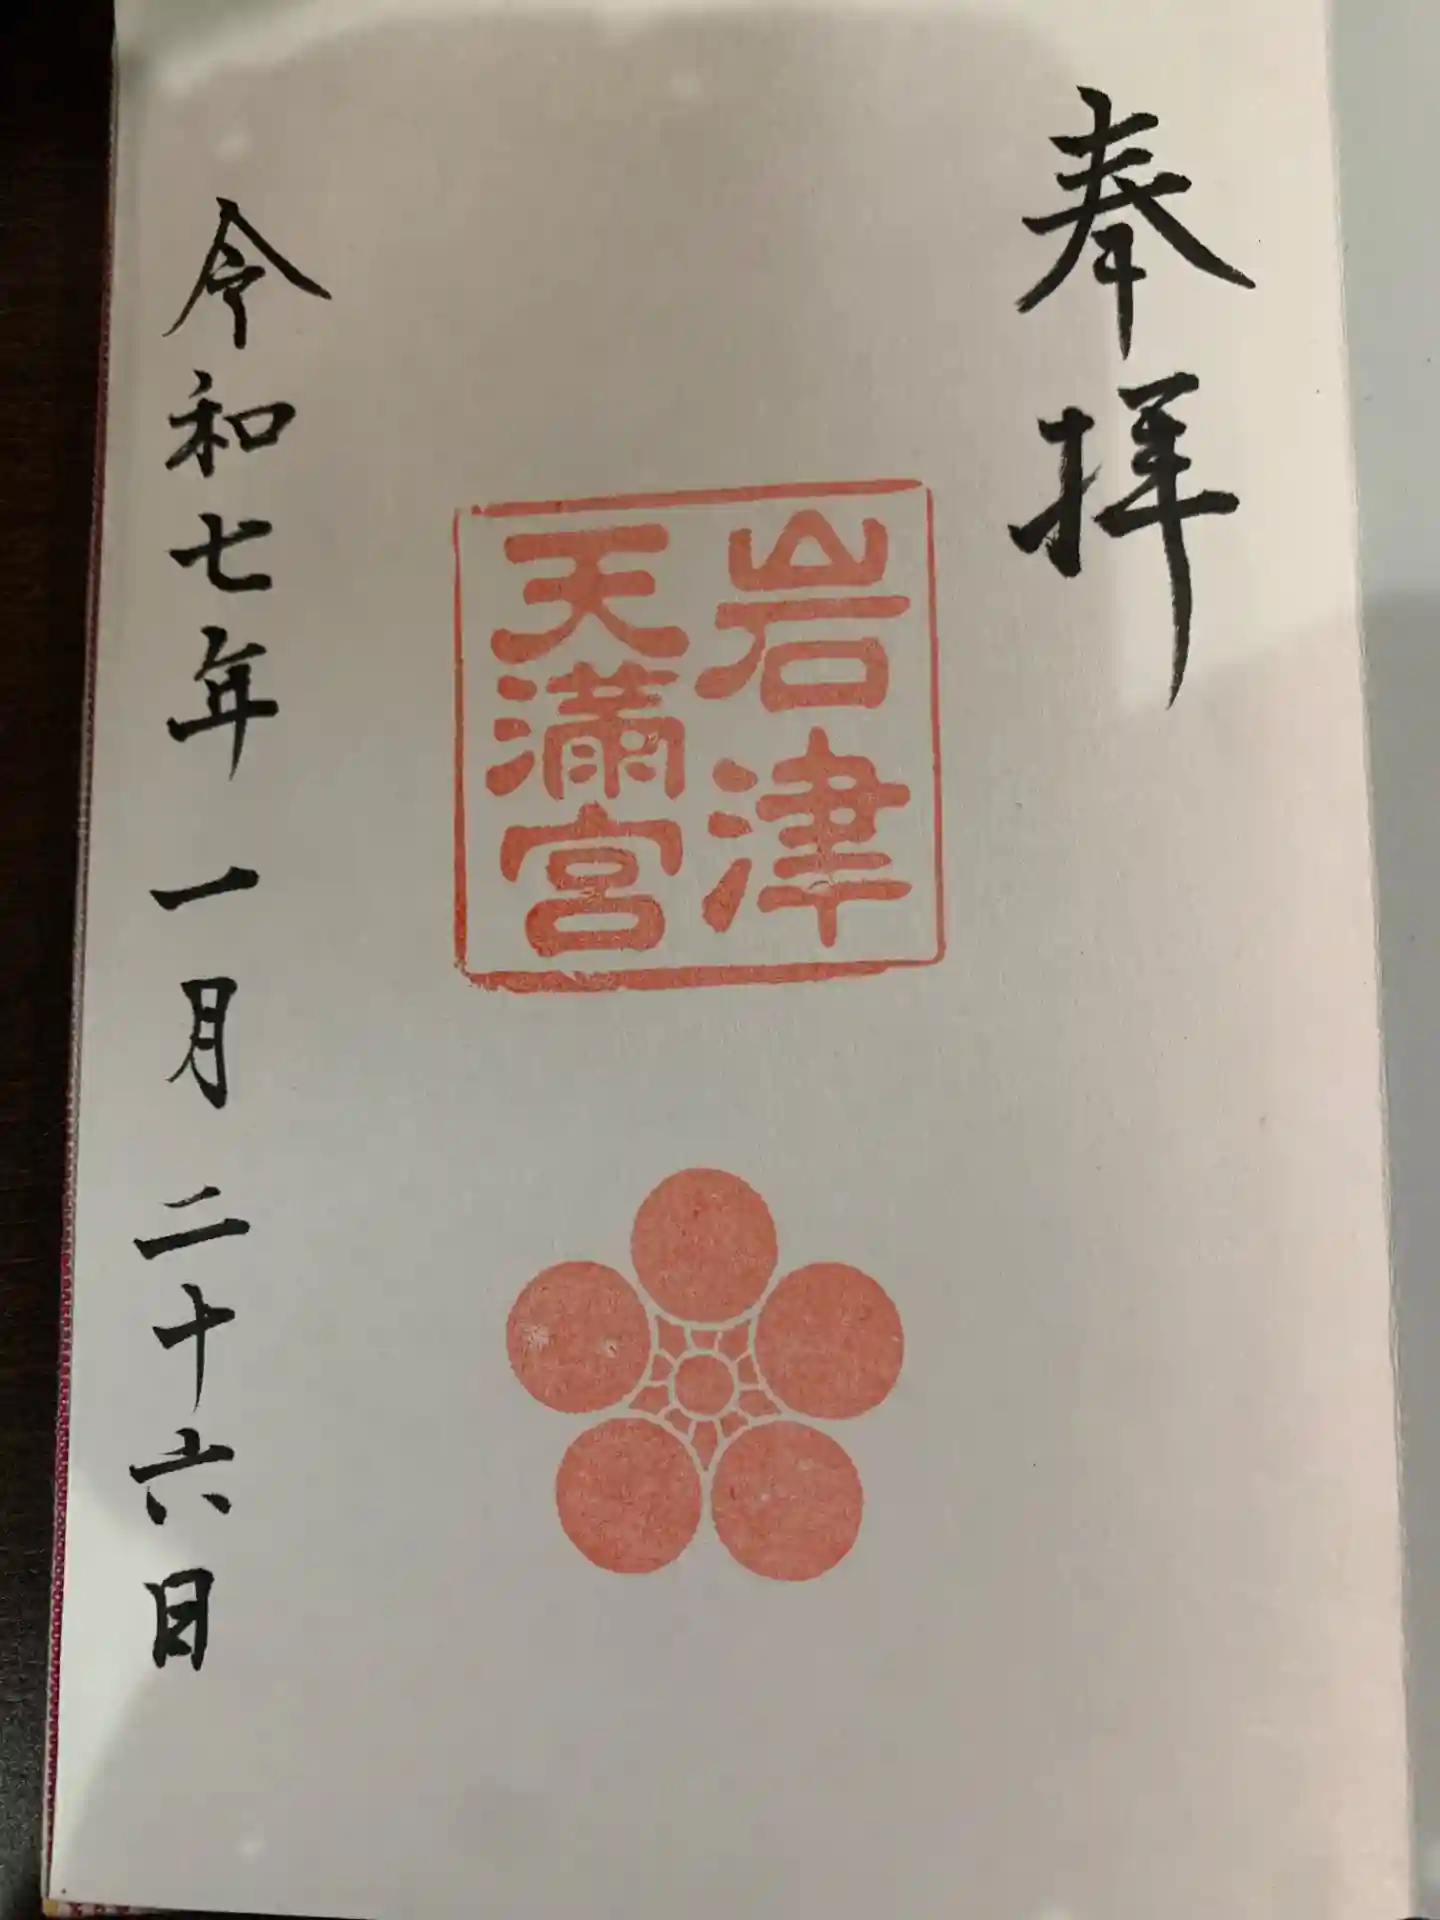 奉拝
岩津
天満宮
令和七年一月二十六日